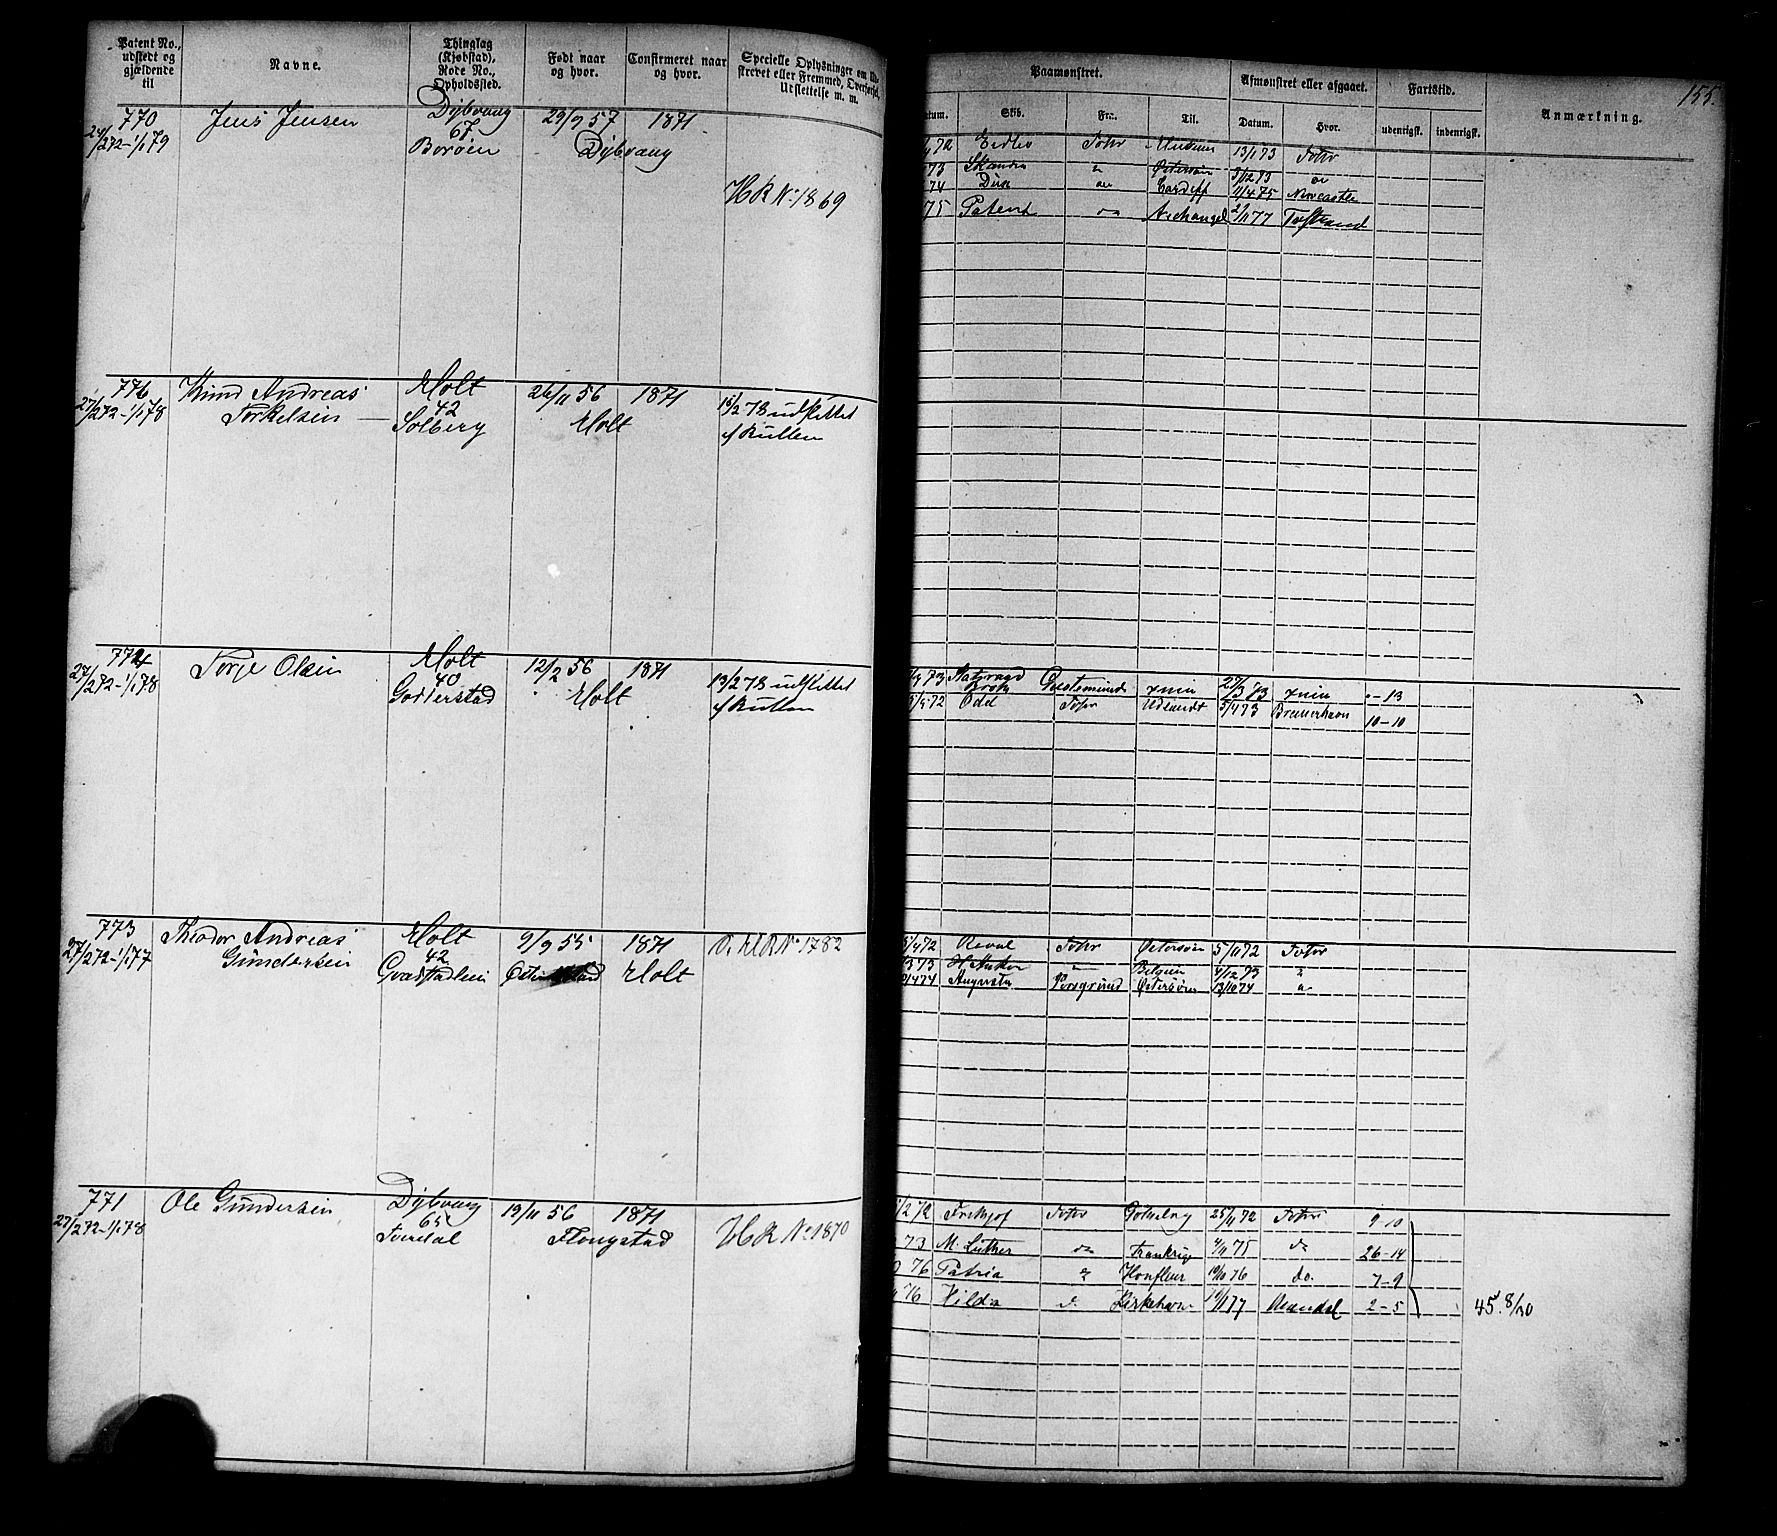 Patent No., udstedt og gjældende til
Navne.
Thinglag (Kjøbstad), Rode No., Opholdssted.
Født naar og hvor.
Confirmeret naar og hvor.
Specielle Oplysninger om Ud-
skrevet eller Fremmed, Overførsel,
Udslettelse m. m.
Paamønstret.
Skib.
Fra.
Til.
Afmønstret eller afgaaet.
Datum.
Hvor.
Fartstid.
udenrigsk.
indenrigsk.
Anmærkning.
155.
770
Jens Jensen
Dybvaag
67
Borøen
29/9 57
1871
Dybvaag
HR No. 1869
73 Skandia
74 Dux do Cardiff 11/4 75 Newcastle
75 Patent do Archangel 2/11 77 Tvestrand
776
27/2 72 - 1/1 78
Knud Andreas
Torkelsen
Holt
42
Solberg
26/11 56
1871
Holt
15/2 78 udslettet
af Rullen
774
27/2 72 - 1/1 78
Torje Olsen
Holt
40
Goderstad
12/2 56
1871
Holt
13/2 78 udslettet
af Rullen
Geestemünde
Odel Tvstr Udlandt 5/4 73 Bremerhavn 10-10
773
27/2 72 - 1/1 77
Theodor Andreas
Gundersen
Holt
42
Gvarstadlein
9/9 55
1871
Holt
O. HR No. 1782
5/4 72 Reval Tvstr Østersøen 5/11 72 Tvstr
73 H Anker Belgien 4/12 73
Augusta Porsgrund Østersøen 13/10 74
771
27/2 72 - 1/1 78
Ole Gundersen
Dybvaag
65
Tverdal
19/11 56
1871
Flougstad
HR No. 1870
72 Frithjof Tvstr Gøteborg 25/11 72 Tvstr 9-10
73 M. Luther do Frankrig 4/11 75 do 26-14
76 Patria Honfleur 19/10 76 do. 7-9
76 Hilda d. Kirkehavn Mandal 2-5
45. 8/20